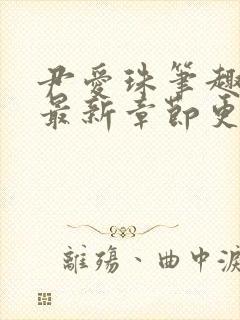 尹愛珠筆趣
最新章節更
離殤、曲中淚